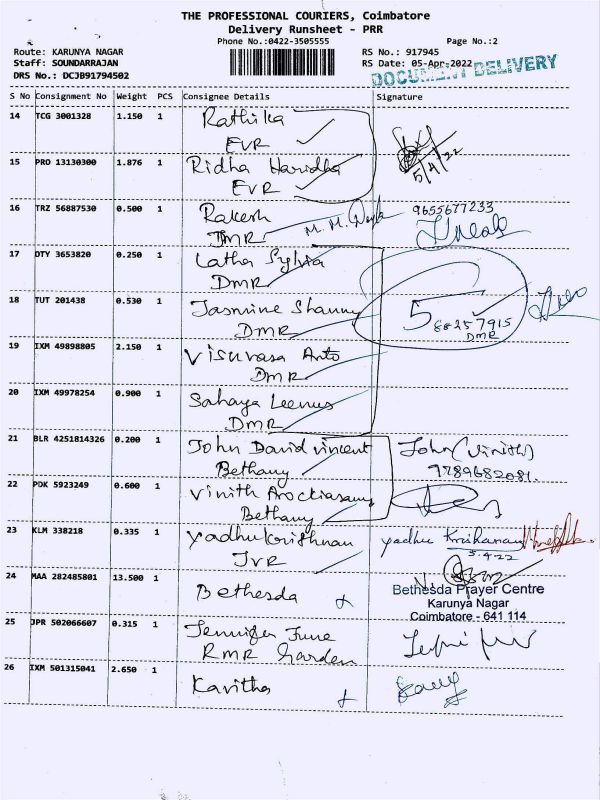 THE PROFESSIONAL COURIERS, Coimbatore
Delivery Runsheet - PRR
Phone No.:0422-3505555 Page No.:2
Route: KARUNYA NAGAR RS No.: 917945
Staff: SOUNDARRAJAN RS Date: 05-Apr-2022
DRS No.: DCJB91794502 DOCUMENT DELIVERY
S No Consignment No Weight PCS Consignee Details Signature
14 TCG 3001328 1.150 1 Rathika
EVR
5/4/22
15 PRO 13130300 1.876 1 Ridha Haridha
EVR
16 TRZ 56887530 0.500 1 Rakesh 9655677233
DMR M. M.
17 DTY 3653820 0.250 1 Latha Sylvia
DMR
18 TUT 201438 0.530 1 Jasmine Shanny 5 88257915
DMR DMR
19 IXM 49898805 2.150 1 Visuvasa Anto
DMR
20 IXM 49978254 0.900 1 Sahaya Leenus
DMR
21 BLR 4251814326 0.200 1 John David vincent John (Vinith)
Bethany 9789682081.
22 PDK 5923249 0.600 1 Vinith Arockiasamy
Bethany
23 KLM 338218 0.335 1 Yadhu Krishnan Yadhu Krishanan
JVR 5.4.22
24 MAA 282485801 13.500 1 Bethesda
Bethesda Prayer Centre
Karunya Nagar
Coimbatore - 641 114
25 JPR 502066607 0.315 1 Jennifer June
RMR Garden
26 IXM 501315041 2.650 1 Kavitha